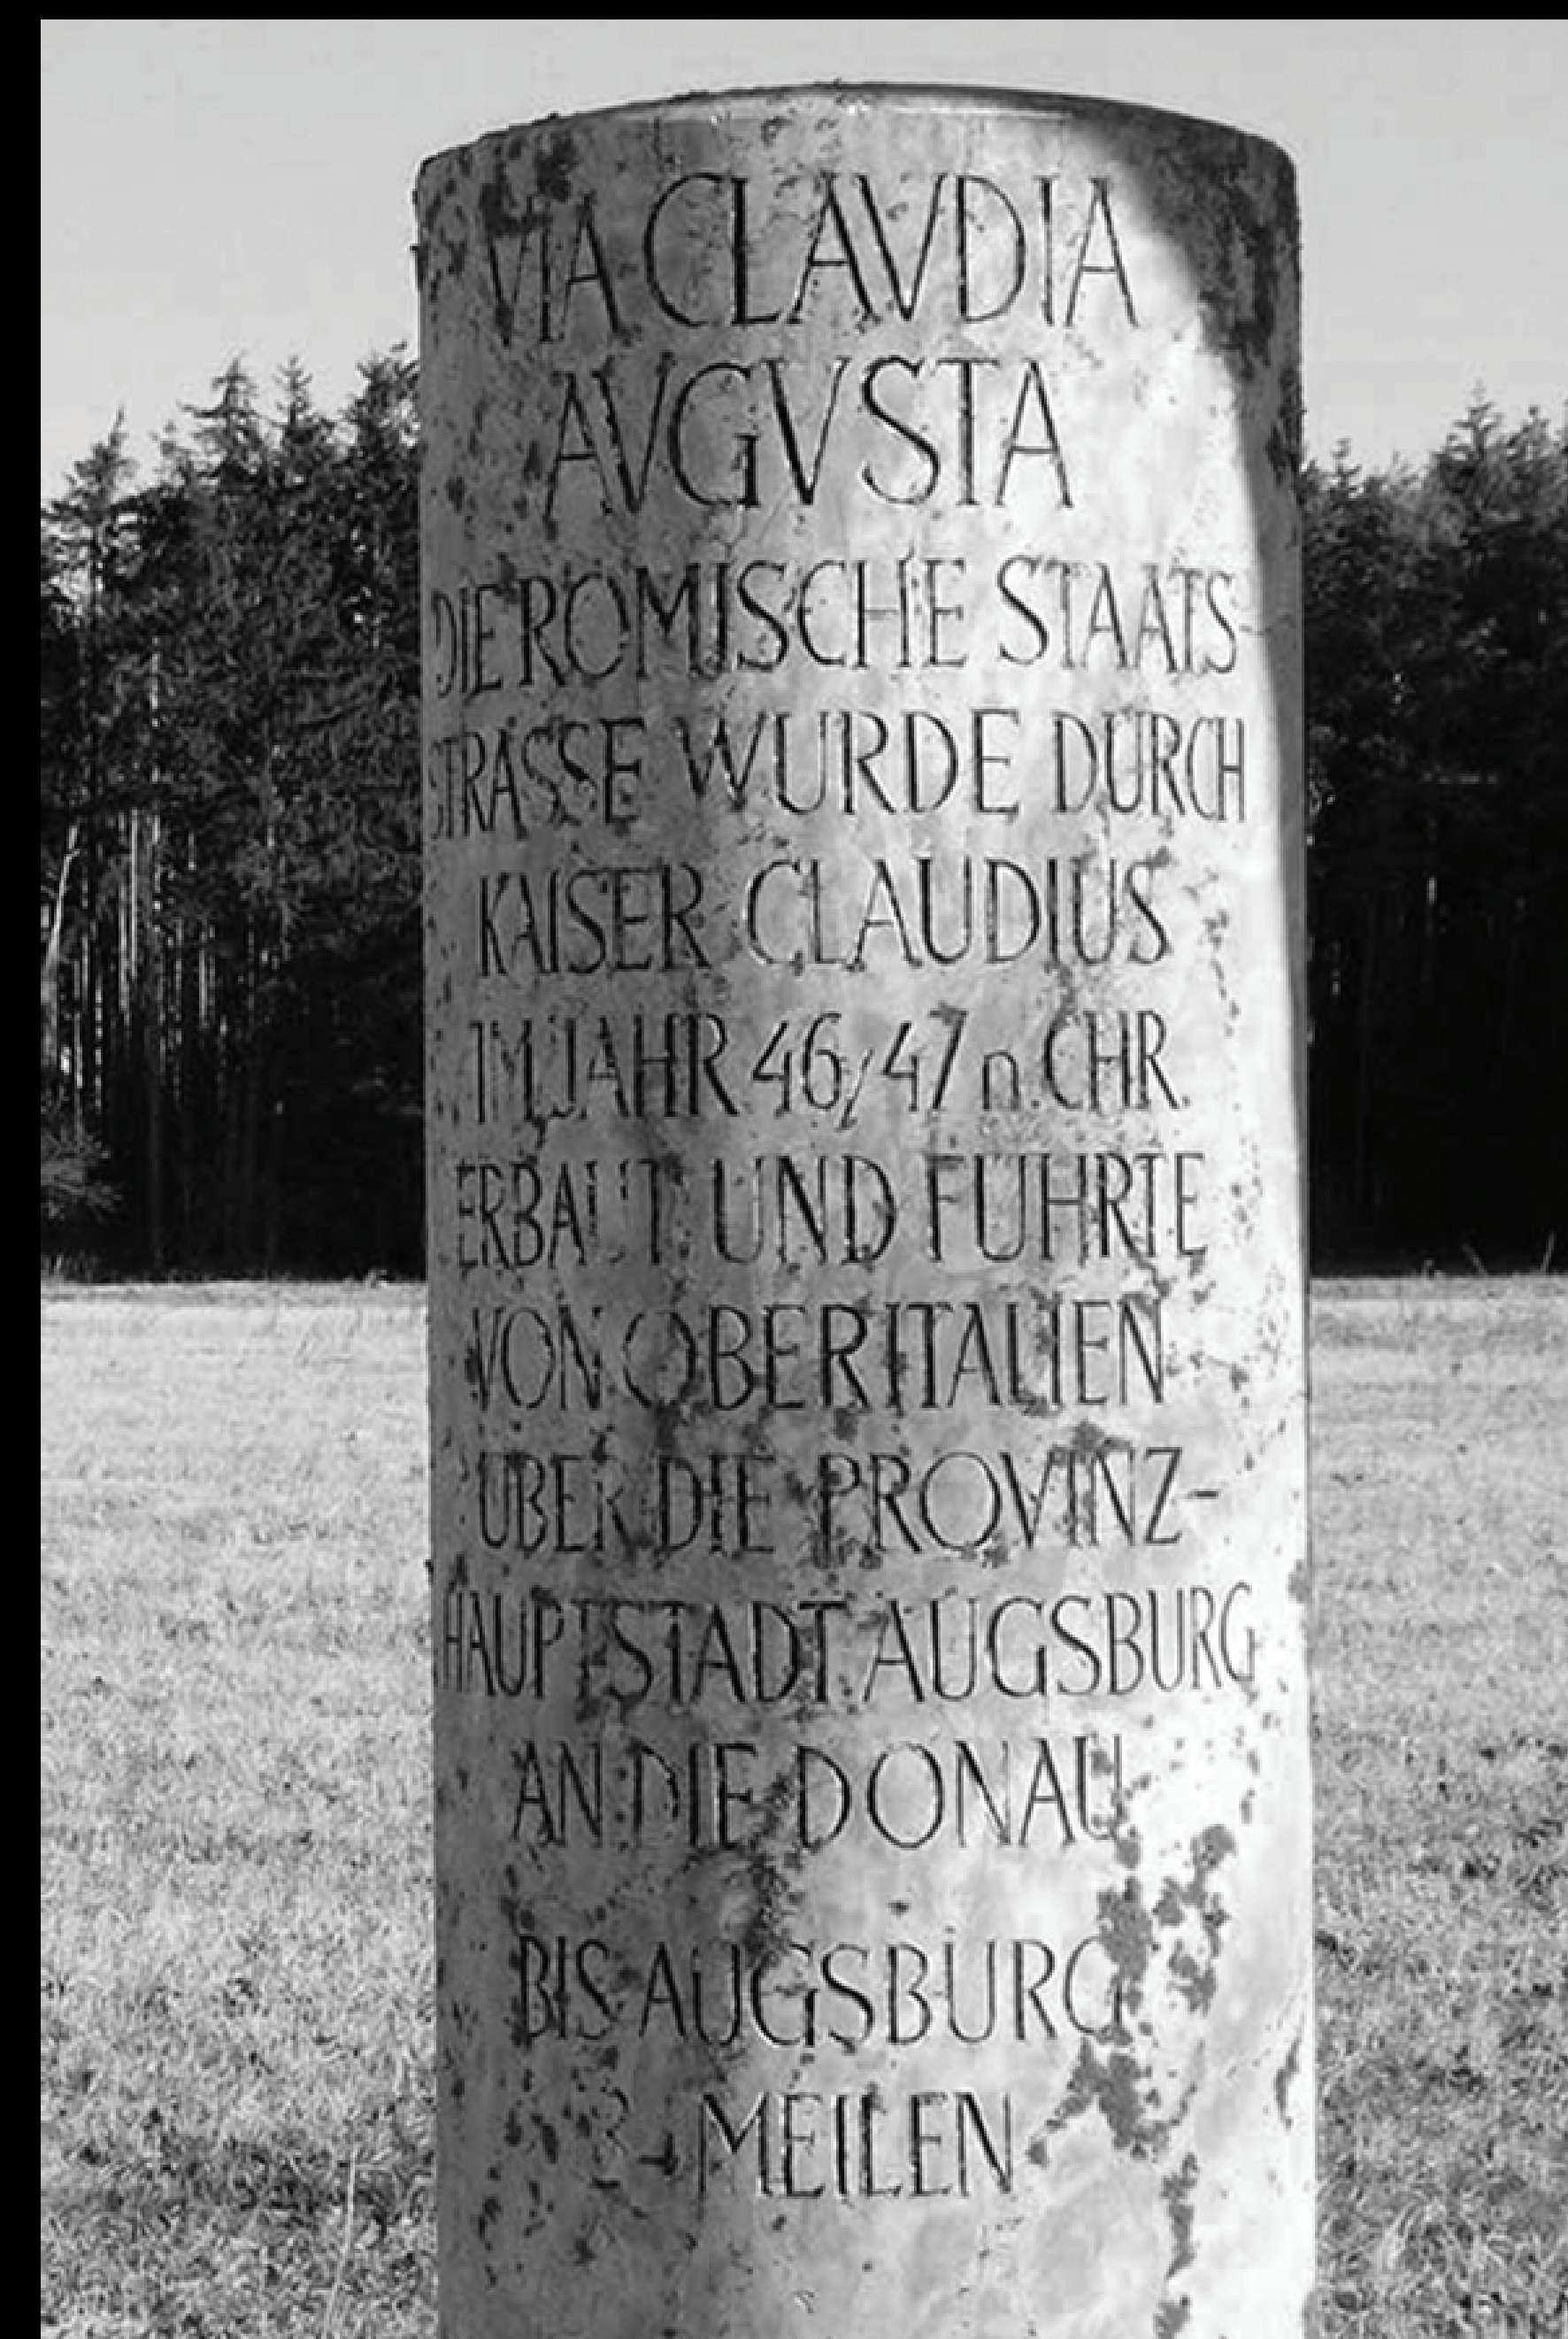 VIA CLAVDIA
AVGVSTA
DIE RÖMISCHE STAATS
STRASSE WURDE DURCH
KAISER CLAUDIUS
IM JAHR 46/47 n. CHR.
ERBAUT UND FÜHRTE
VON OBERITALIEN
ÜBER DIE PROVINZ-
HAUPTSTADT AUGSBURG
AN DIE DONAU
BIS AUGSBURG
MEILEN